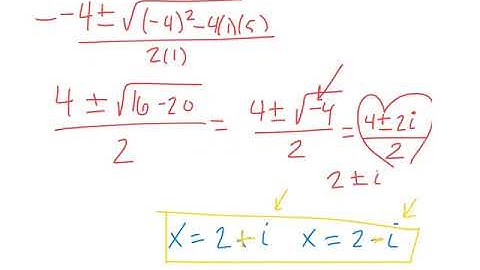 --4±√(-4)²-4(1)(5)
2(1)
4±√16-20 / 2 = 4±√-4 / 2 = 4±2i / 2
2±i
x=2+i x=2-i